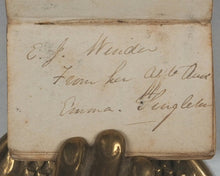 E. J. Winder
From her Aff'te Aunt
Emma. Singleton